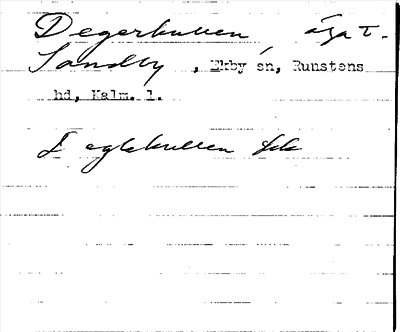 Degerkullen äga t.
Sandby, Ekby sn, Runstens
hd, Kalm. l.